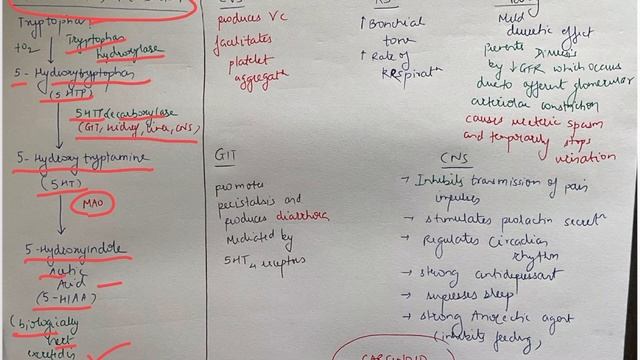 Tryptophan
+O2
Tryptophan
hydroxylase
5-Hydroxytryptophan
(5HTP)
5HT decarboxylase
(GIT, kidney, liver, CNS)
5-Hydroxy tryptamine
(5HT)
MAO
5-Hydroxyindole
Acetic
Acid
(5-HIAA)
(biologically
CVS
produces VC
facilitates
platelet
aggregatn
↑ Bronchial
tone
↑ Rate of
RESpiratn
Mild
diuretic effect
Prevents Diuresis
by ↓GFR which occurs
due to efferent glomerular
arteriolar constriction
causes ureteric spasm
and temporarily stops
urination
GIT
promotes
peristalsis and
produces diarrhora
Mediated by
5HT4 receptors
CNS
→ Inhibits transmission of pain
impulses
→ stimulates prolactin secretn
→ Regulates Circadian
rhythm
→ strong antidepressant
→ supresses sleep
→ strong Anorectic agent
(inhibits feeding)
CARCINOID